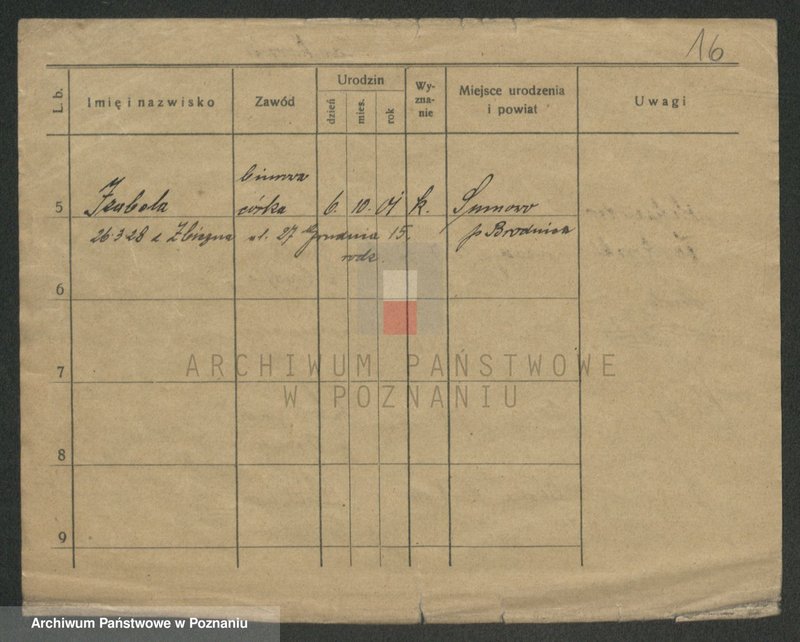 16
L. b. Imię i nazwisko Zawód Urodzin dzień mies. rok Wy- zna- nie Miejsce urodzenia i powiat Uwagi
biurowa
5 Izabela córka 6. 10. 01 k. Sumowo
26.3.28 z Zbiczna ul. 27 Grudnia 15. p. Brodnica
rodz.
6
ARCHIWUM PAŃSTWOWE
7
W POZNANIU
8
9
Archiwum Państwowe w Poznaniu